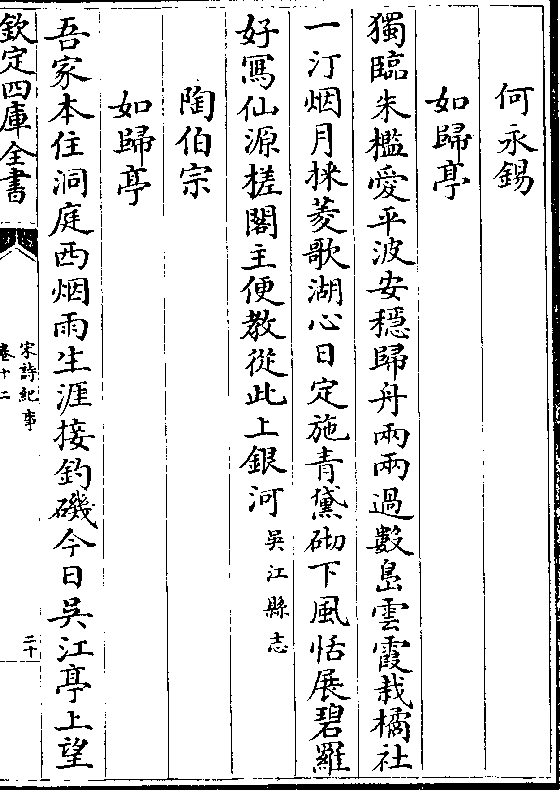 何永錫
如歸亭
獨臨朱檻愛平波安穩歸舟兩兩過數島雲霞栽橘社
一汀烟月採菱歌湖心日定施青黛砌下風恬展碧羅
好寫仙源槎閣主便教從此上銀河吳江縣志
陶伯宗
如歸亭
吾家本住洞庭西烟雨生涯接釣磯今日吳江亭上望
欽定四庫全書
宋詩紀事
卷十二
二十